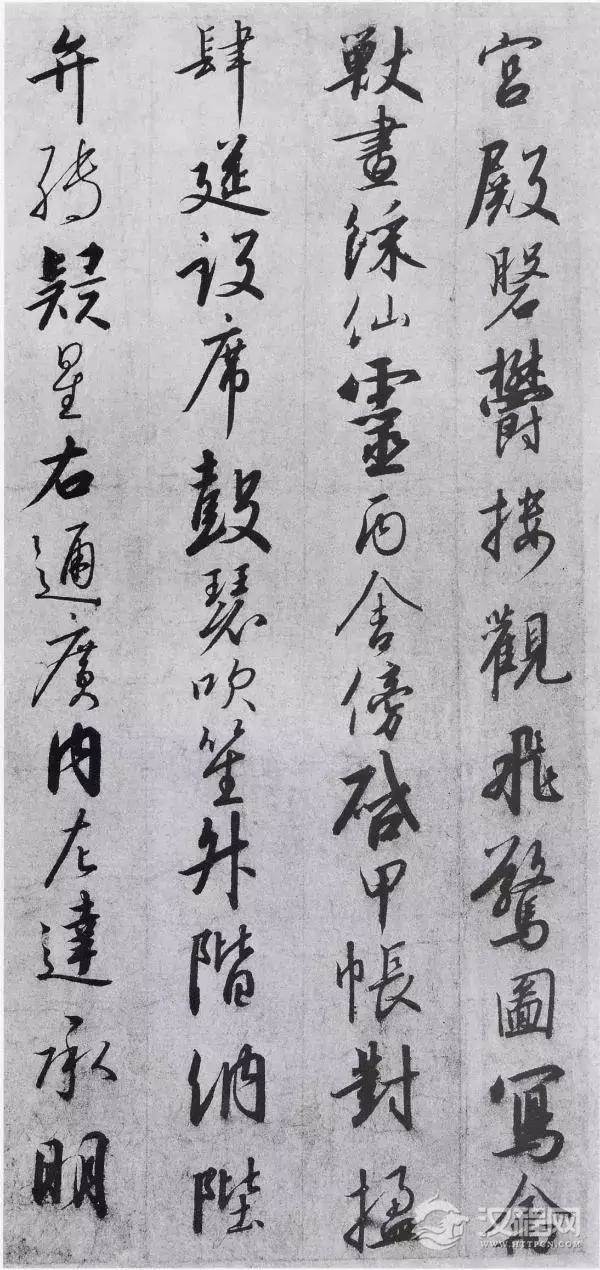 宮殿磐欝樓觀飛驚圖寫禽
獸畫綵仙靈丙舍傍啓甲帳對楹
肆筵設席鼓瑟吹笙升階納陛
弁轉疑星右通廣內左達承明
汉程网
HTTPCN.COM